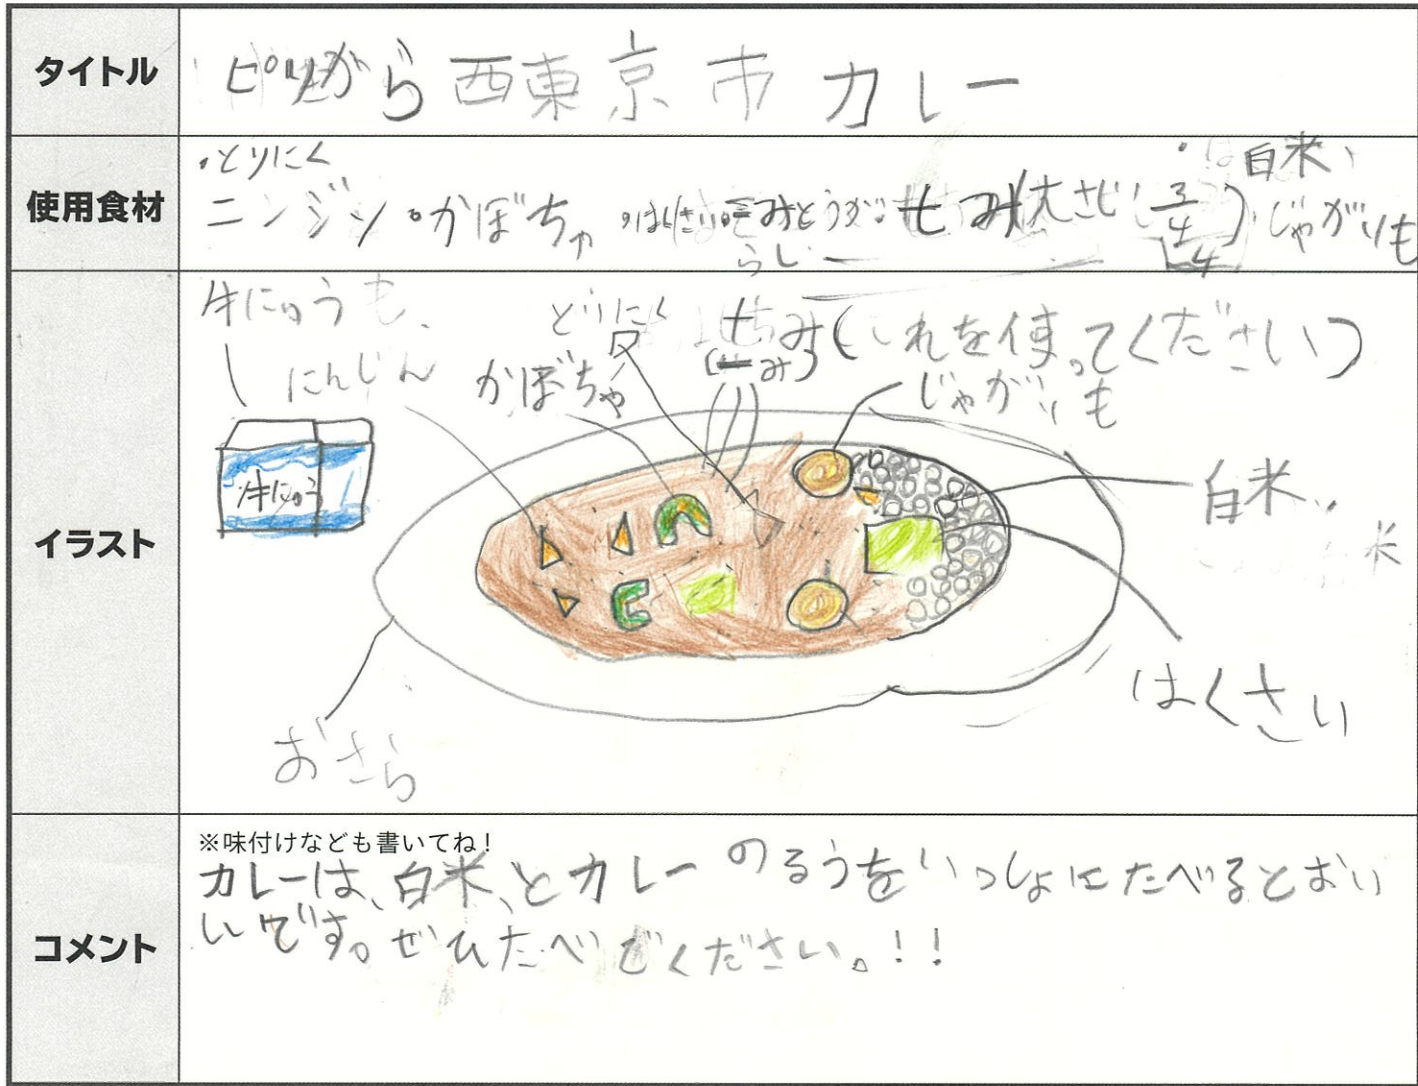 タイトル
ピリがら西東京市カレー
使用食材
・とりにく
ニンジン・かぼちゃ・はくさい・とうがらし 七み(大さじ 3/4) 白米、じゃがいも
イラスト
牛にゅうも、
にんじん
とりにく
かぼちゃ
七み(これを使ってください)
じゃがいも
牛にゅう
白米
はくさい
おさら
コメント
※味付けなども書いてね!
カレーは、白米、とカレーのるうをいっしょにたべるとおい
しいです。ぜひたべてください。!!